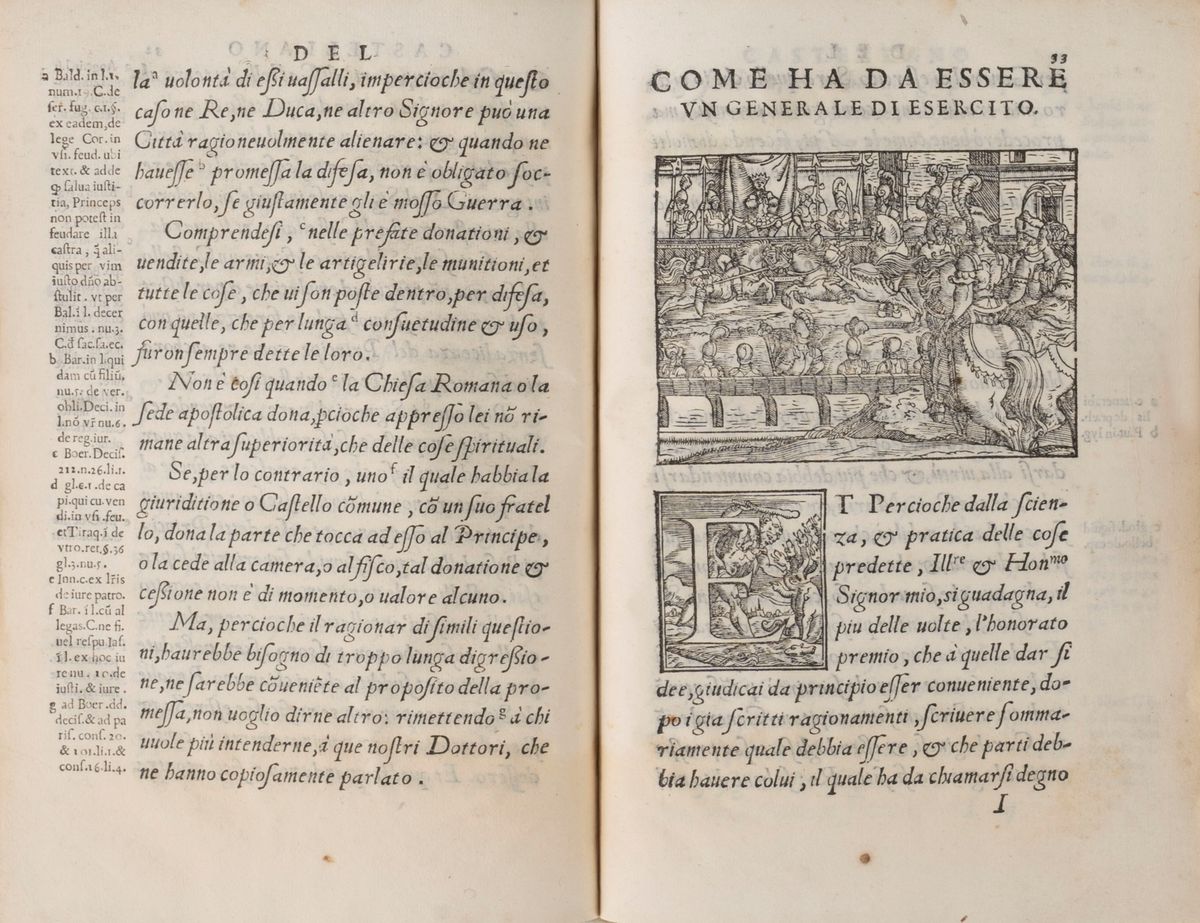 DEL
a Bald. in l.1.
num.17. C. de
ser. fug. c.1.§.
ex eadem, de
lege Cor. in
vſi. feud. ubi
text. & adde
ꝙ ſalua iuſti-
tia, Princeps
non poteſt in
feudare illa
caſtra, q̃ ali-
quis per vim
iuſto dño ab-
ſtulit. vt per
Bal. ĩ l. decer
nimus. nu.3.
C. đ ſac.ſa.ec.
b Bar. in l. qui
dam cũ filiũ,
nu.5. de ver.
obli. Deci. in
l. nõ vr̃ nu.6.
de reg. iur.
c Boer. Deciſ.
212.n.26.li.1.
d gl.e.1. de ca
pi. qui cu. ven
di. in vſi. feu.
et Tiraq. ĩ de
vtro. ret. §.36
gl.3.nu.5.
e Inn. c. ex lr̃is
de iure patro.
f Bar. ĩ l. cũ al
legas. C. ne fi.
uel reſpu. Iaſ.
ĩ l. ex hoc iu
re nu. 10. de
iuſti. & iure.
g ad Boer. dd.
deciſ. & ad pa
riſ. conſ. 20.
& 101.li.1.&
conſ.16.li.4.
laᵃ uolontà di eßi uaſſalli, impercioche in queſto
caſo ne Re, ne Duca, ne altro Signore può una
Città ragioneuolmente alienare: & quando ne
haueſſe ᵇ promeſſa la difeſa, non è obligato ſoc-
correrlo, ſe giuſtamente gli è moſſo Guerra.
Comprendeſi, ᶜ nelle prefate donationi, &
uendite, le armi, & le artigelirie, le munitioni, et
tutte le coſe, che ui ſon poſte dentro, per difeſa,
con quelle, che per lunga ᵈ conſuetudine & uſo,
furon ſempre dette le loro.
Non è coſi quando ᵉ la Chieſa Romana o la
ſede apoſtolica dona, ꝑcioche appreſſo lei nõ ri-
mane altra ſuperiorità, che delle coſe ſpirituali.
Se, per lo contrario, uno ᶠ il quale habbia la
giuriditione o Caſtello cõmune, cõ un ſuo fratel
lo, dona la parte che tocca ad eſſo al Principe,
o la cede alla camera, o al fiſco, tal donatione &
ceßione non è di momento, o ualore alcuno.
Ma, percioche il ragionar di ſimili queſtio-
ni, haurebbe biſogno di troppo lunga digreßio-
ne, ne ſarebbe cõueniẽte al propoſito della pro-
meſſa, non uoglio dirne altro: rimettendo ᵍ à chi
uuole più intenderne, à que noſtri Dottori, che
ne hanno copioſamente parlato.
33
COME HA DA ESSERE
VN GENERALE DI ESERCITO.
ET Percioche dalla ſcien-
za, & pratica delle coſe
predette, Illʳᵉ & Honᵐᵒ
Signor mio, ſi guadagna, il
piu delle uolte, l'honorato
premio, che à quelle dar ſi
dee, giudicai da principio eſſer conueniente, do-
po i gia ſcritti ragionamenti, ſcriuere ſomma-
riamente quale debbia eſſere, & che parti deb-
bia hauere colui, il quale ha da chiamarſi degno
I